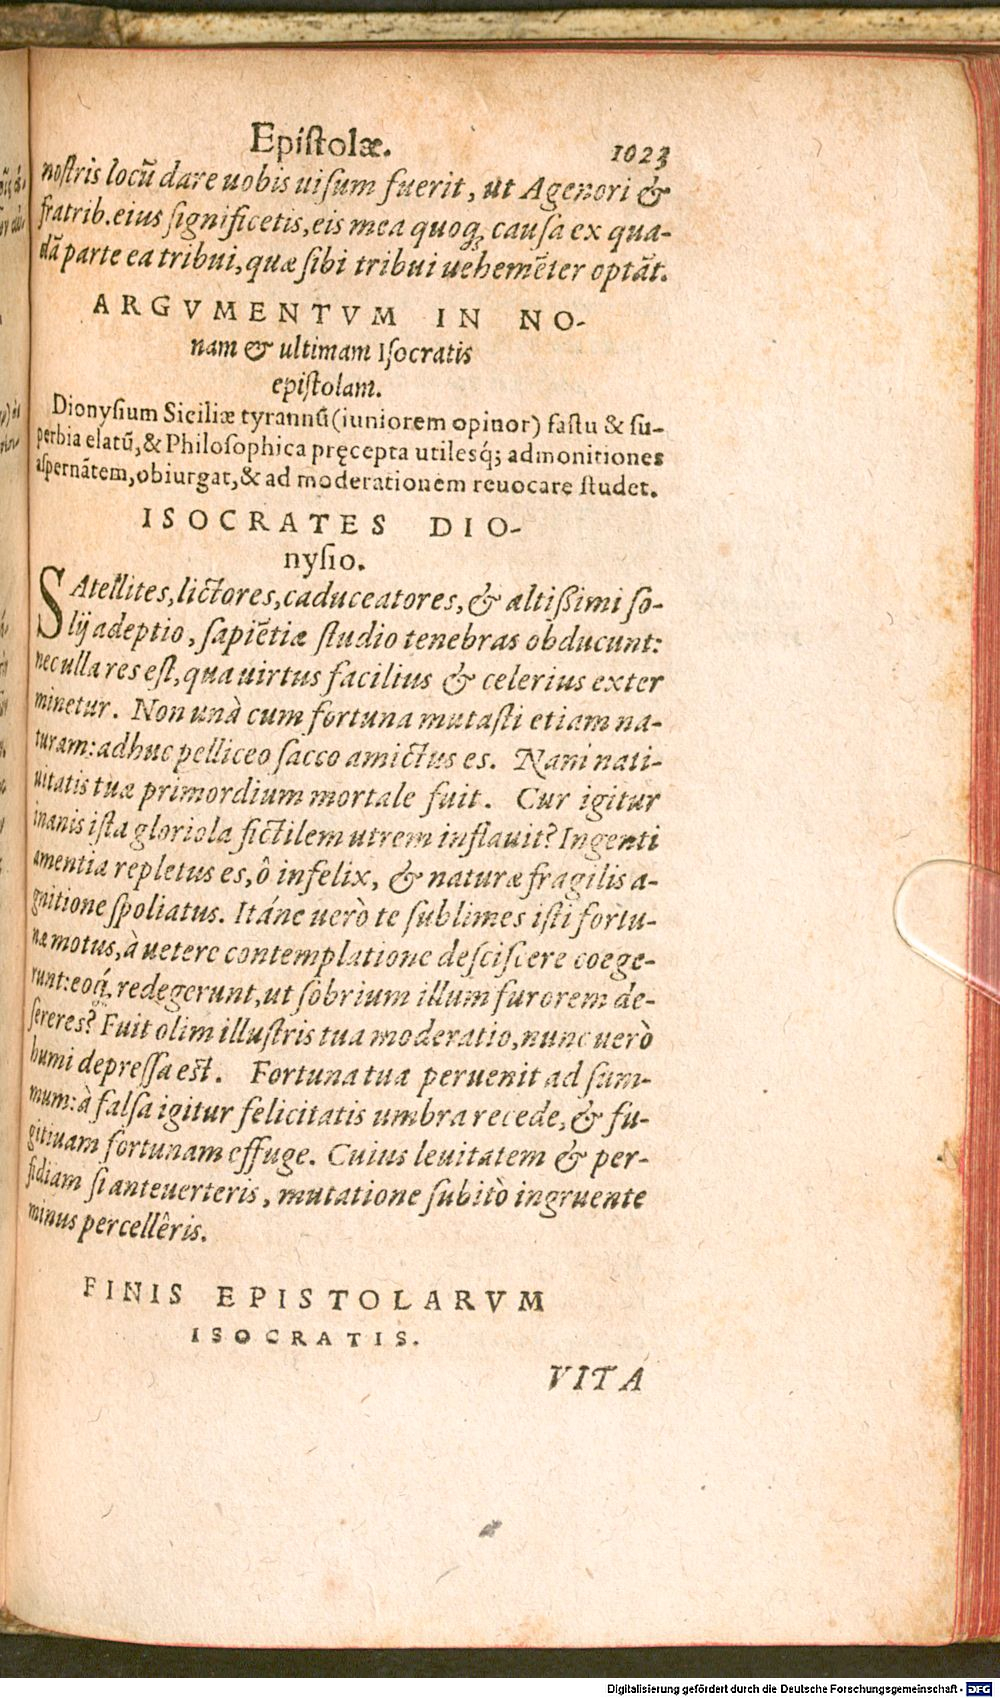 Epistolæ. 1023
nostris locũ dare uobis uisum fuerit, ut Agenori &
fratrib. eius significetis, eis mea quoq; causa ex qua-
dã parte ea tribui, quæ sibi tribui uehemẽter optãt.
ARGVMENTVM IN NO-
nam & ultimam Isocratis
epistolam.
Dionysium Siciliæ tyrannũ (iuniorem opinor) fastu & su-
perbia elatũ, & Philosophica pręcepta utilesq́; admonitiones
aspernãtem, obiurgat, & ad moderationem reuocare studet.
ISOCRATES DIO-
nysio.
SAtellites, lictores, caduceatores, & altißimi so-
lij adeptio, sapiẽtiæ studio tenebras obducunt:
nec ulla res est, qua uirtus facilius & celerius exter
minetur. Non unà cum fortuna mutasti etiam na-
turam: adhuc pelliceo sacco amictus es. Nam nati-
uitatis tuæ primordium mortale fuit. Cur igitur
inanis ista gloriola fictilem utrem inflauit? Ingenti
amentia repletus es, ô infelix, & naturæ fragilis a-
gnitione spoliatus. Itáne uerò te sublimes isti fortu-
næ motus, à uetere contemplatione desciscere coege-
runt: eoq́; redegerunt, ut sobrium illum furorem de-
sereres? Fuit olim illustris tua moderatio, nunc uerò
humi depressa est. Fortuna tua peruenit ad sum-
mum: à falsa igitur felicitatis umbra recede, & fu-
gitiuam fortunam effuge. Cuius leuitatem & per-
fidiam si anteuerteris, mutatione subitò ingruente
minus percellêris.
FINIS EPISTOLARVM
ISOCRATIS.
VITA
Digitalisierung gefördert durch die Deutsche Forschungsgemeinschaft - DFG